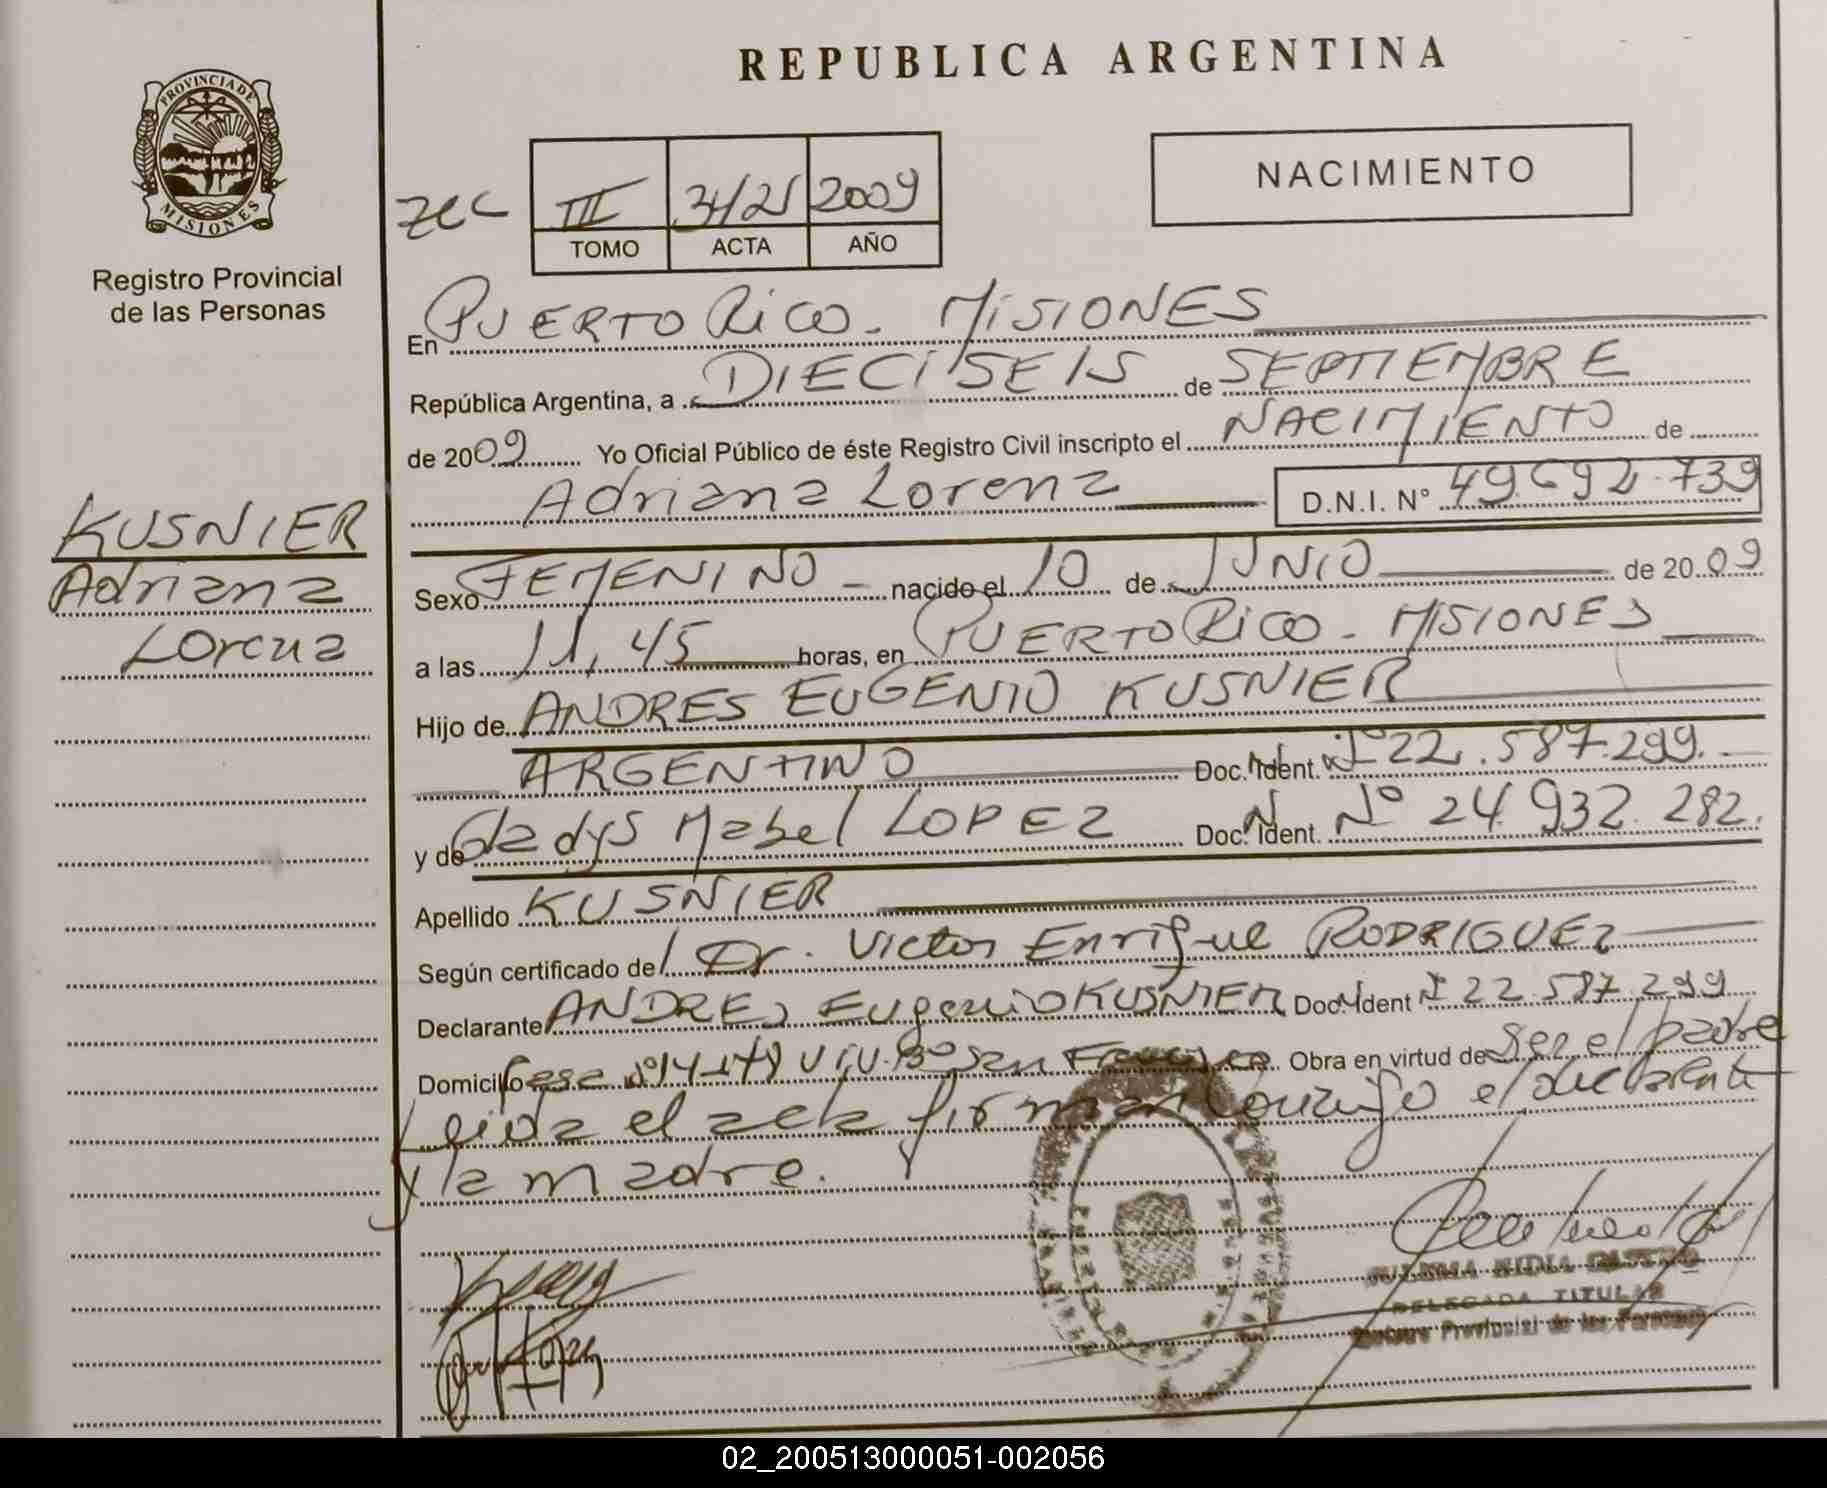 REPUBLICA ARGENTINA
PROVINCIA DE MISIONES
Registro Provincial
de las Personas
NACIMIENTO
III 2009
TOMO ACTA AÑO
En PUERTO RICO - MISIONES
República Argentina, a DIECISEIS de SEPTIEMBRE
de 2009 Yo Oficial Público de éste Registro Civil inscripto el NACIMIENTO de
Adriana Lorena D.N.I. Nº 49.692.739
KUSNIER
Adriana
Lorena
Sexo FEMENINO nacido el 10 de JUNIO de 2009
a las 11,45 horas, en PUERTO RICO - MISIONES
Hijo de ANDRES EUGENIO KUSNIER
ARGENTINO Doc. Ident. Nº 22.587.299.
y de Gladys Mabel LOPEZ Doc. Ident. N Nº 24.932.282.
Apellido KUSNIER
Según certificado del Dr. Victor Enrique RODRIGUEZ
Declarante ANDRES Eugenio KUSNIER Doc. Ident Nº 22.587.299
Domicilio San Francisco Obra en virtud de Ser el padre
Leida el acta firman conmigo el declarante
y la madre.
DELEGADA TITULAR
Registro Provincial de las Personas
02_200513000051-002056